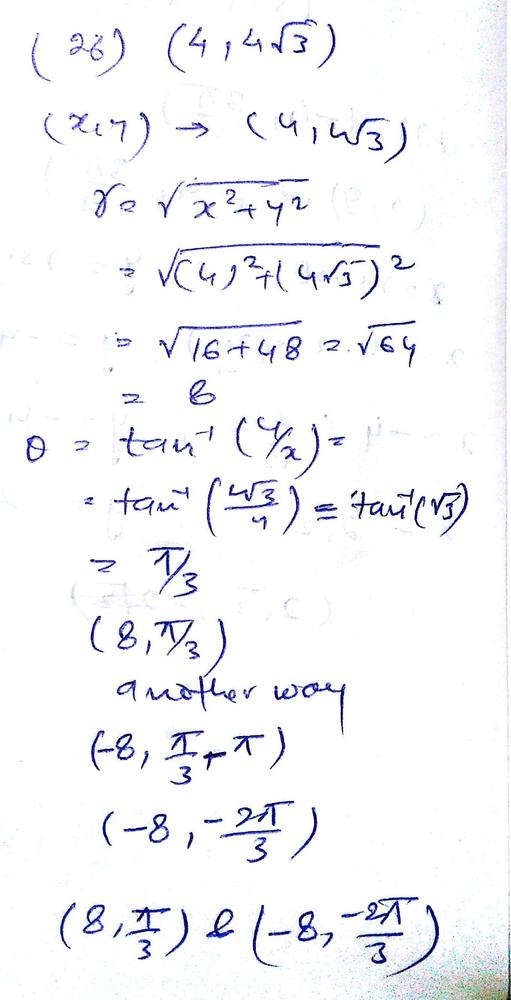 (26) (4, 4√3)
(x, y) → (4, 4√3)
r = √x²+y²
= √(4)²+(4√3)²
= √16+48 = √64
= 8
θ = tan⁻¹ (y/x) =
= tan⁻¹ (4√3/4) = tan⁻¹(√3)
= π/3
(8, π/3)
another way
(-8, π/3 - π)
(-8, -2π/3)
(8, π/3) & (-8, -2π/3)